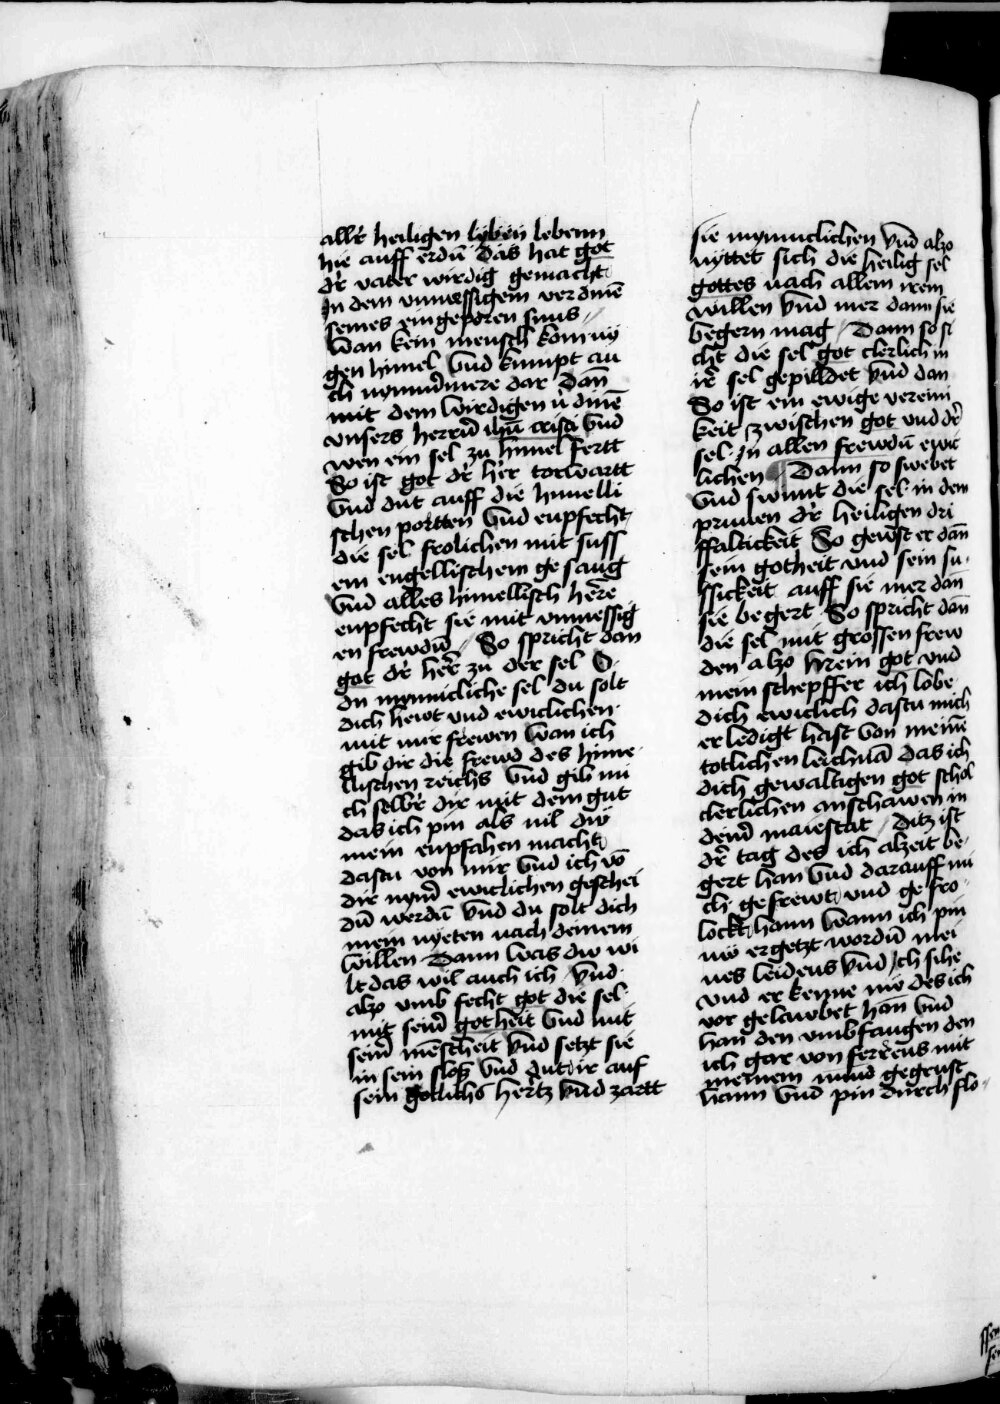 allr̄ heiligen lyben lebenn
hie auff erdū das hat got
dr̄ vater wirdig gemacht
Jn dem vnmessigem verdinē
seines eingeporen suns //
Wan kein mensch kom ny
gen himel Vnd kumpt au
ch nymmermere dar Dan̄
mit dem Wirdigen v̄dinē
vnsers herrn̄ ihū cristi Vnd
wen ein sel zu himel fertt
So ist got dr̄ her torwartt
Vnd dut auff die himelli
schen portten Vnd enpfecht
die sel frolichen mit suss
em engellischem gesang
Vnd alles himellisch here
enpfecht sie mit vnmessig
en frewdū // So spricht dan
got dr̄ her̄ zu der sel O
du mynnicliche sel du solt
dich hewt vnd ewiclichen
mit mir frewen Wan ich
gib dir die frewd des hime
llischen reichs Vnd gib mi
ch selbr̄ dir mit dem gut
das ich pin als vil dw
mein enpfahen macht
dastu von mir Vnd ich vō
dir nym̄ ewiclichen geschei
dū werdū Vnd du solt dich
mein nyeten nach deinem
Willen Dann Was dw wi
lt das wil auch ich / Vnd
alzo vmb fecht got die sel
mit sein̄ gotheit Vnd mit
sein̄ mēscheit Vnd setzt sie
in sein slosz Vnd dut ir auf
sein gotlichs hertz Vnd zartt
sie mynniclichen Vnd alzo
nyttet sich die heilig sel
gottes nach allem irem
willen Vnd mer dann sie
begern mag / Dann so si
cht die sel got clerlich in
ir̄ sel gepildet Vnd dan
So ist ein ewige vereini
keit zwischen got vnd dr̄
sel Jn allen frewdū ewic
lichen // Dann so swebet
Vnd swimt die sel in dem
prunen dr̄ heiligen dri
ffaltickeit So gewst er dan̄
sein gotheit vnd sein su
ssickeit auff sie mer dan̄
sie begert So spricht dan̄
die sel mit grossen frew
den alzo hrein got vnd
mein schepffer ich lobe
dich ewiclich dastu mich
er ledigt hast von meinē
totlichen leichnā das ich
dich gewaltigen got schol
clerlichen anschawen in
dein̄ maiestat / Ditz ist
dr̄ tag des ich alzeit be
gert han Vnd darauff mi
ch gefrewt vnd ge fro
lockt hann Wann ich pin
nw ergetzt wordū mei
nes leidens Vnd Jch sihe
vnd er kenne nw des ich
vor gelawbet han̄ Vnd
han den vmbfangen den
ich gar von ferrens mit
meinem mund gegrust
hann Vnd pin durch flo-